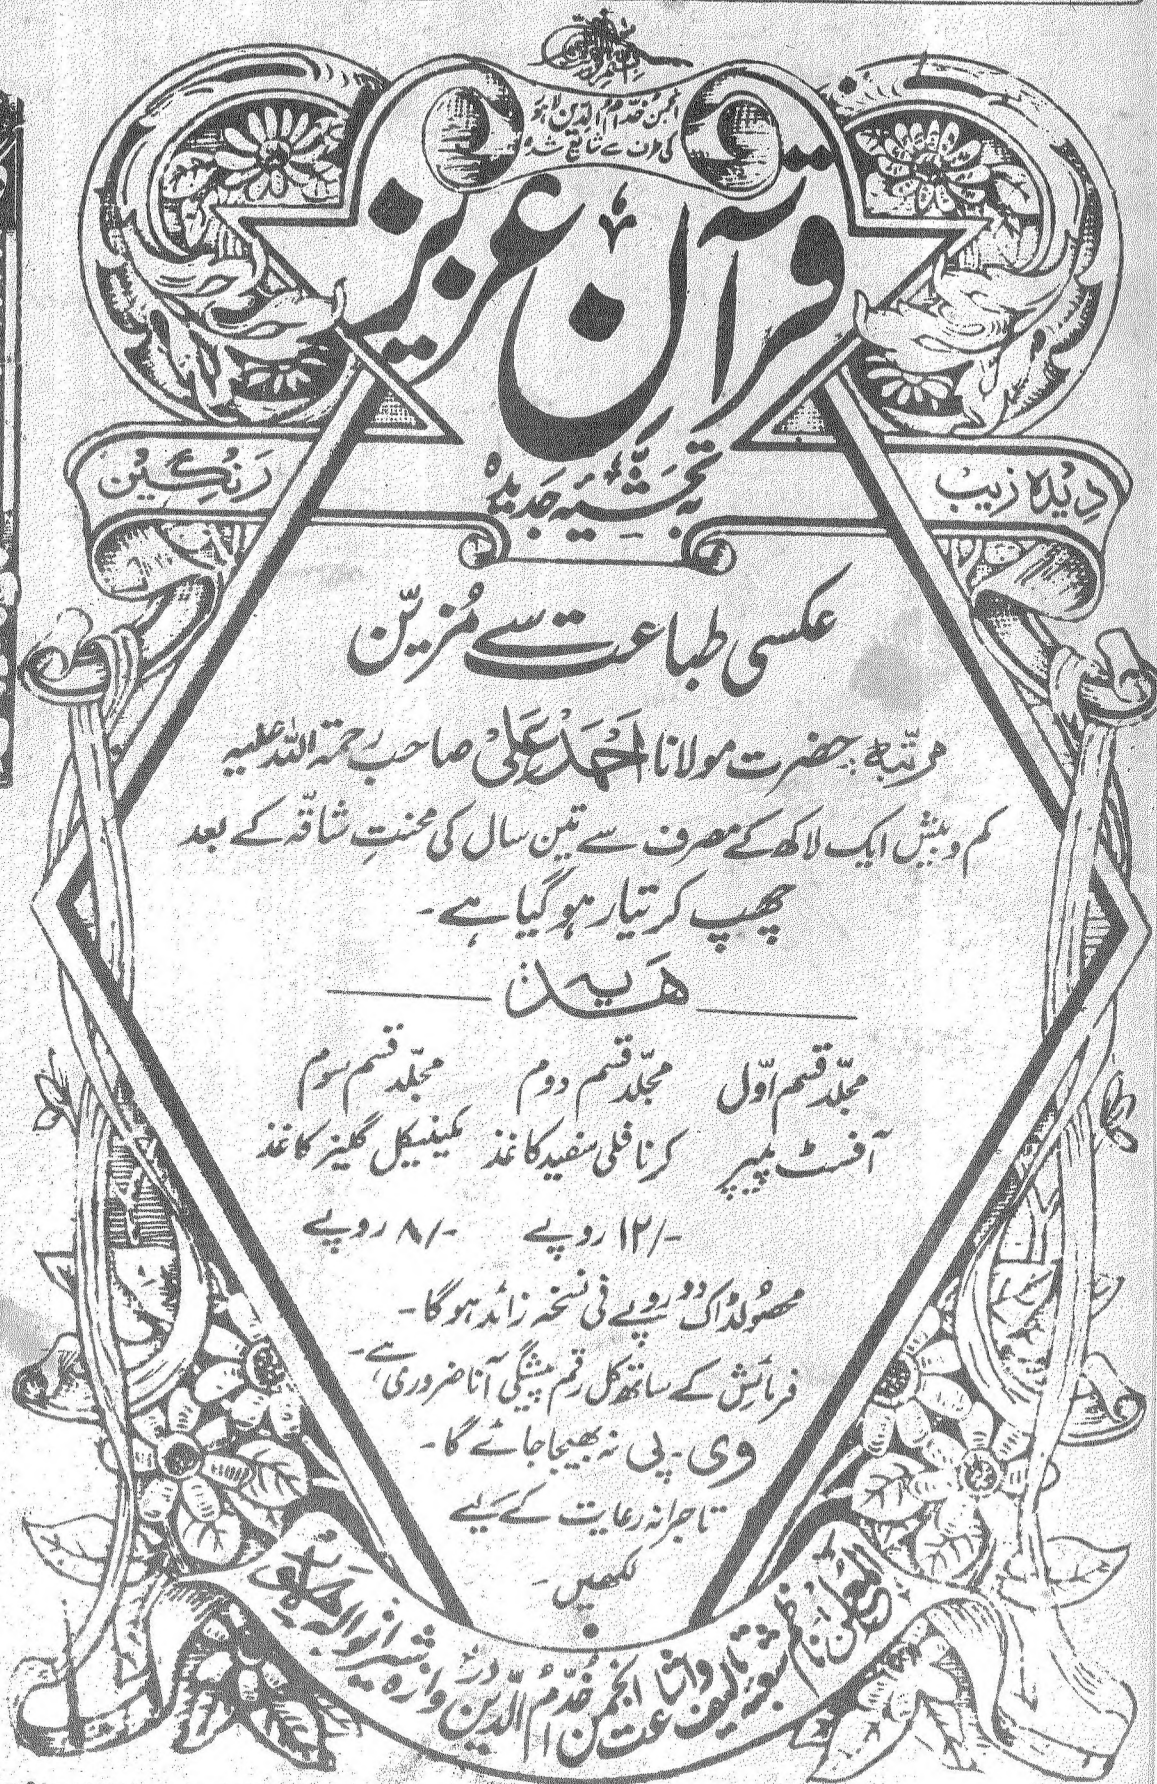 بسم اللہ الرحمن الرحیم
انجمن خدام الدین لاہور
کی طرف سے شائع شدہ
قرآن عزیز
بہ تحشیۂ جدیدہ
دیدہ زیب
رنگین
عکسی طباعت سے مُزیّن
مرتّبہ: حضرت مولانا اَحْمَدْ عَلِیْ صاحب رحمۃ اللہ علیہ
کم و بیش ایک لاکھ کے مصرف سے تین سال کی محنتِ شاقّہ کے بعد
چھپ کر تیار ہو گیا ہے۔
ھَدیہ
مجلّد قسم اوّل مجلّد قسم دوم مجلّد قسم سوم
آفسٹ پیپر کرنافلی سفید کاغذ مکینیکل گلیز کاغذ
۱۲/- روپے ۸/- روپے
محصولڈاک دو روپے فی نسخہ زائد ہو گا۔
فرمائش کے ساتھ کل رقم پیشگی آنا ضروری ہے۔
وی۔پی نہ بھیجا جائے گا۔
تاجرانہ رعایت کے لیے
لکھیں۔
المعلن ناظم شعبۂ تالیف و اشاعت انجمن خدّام الدّین دروازہ شیرانوالہ